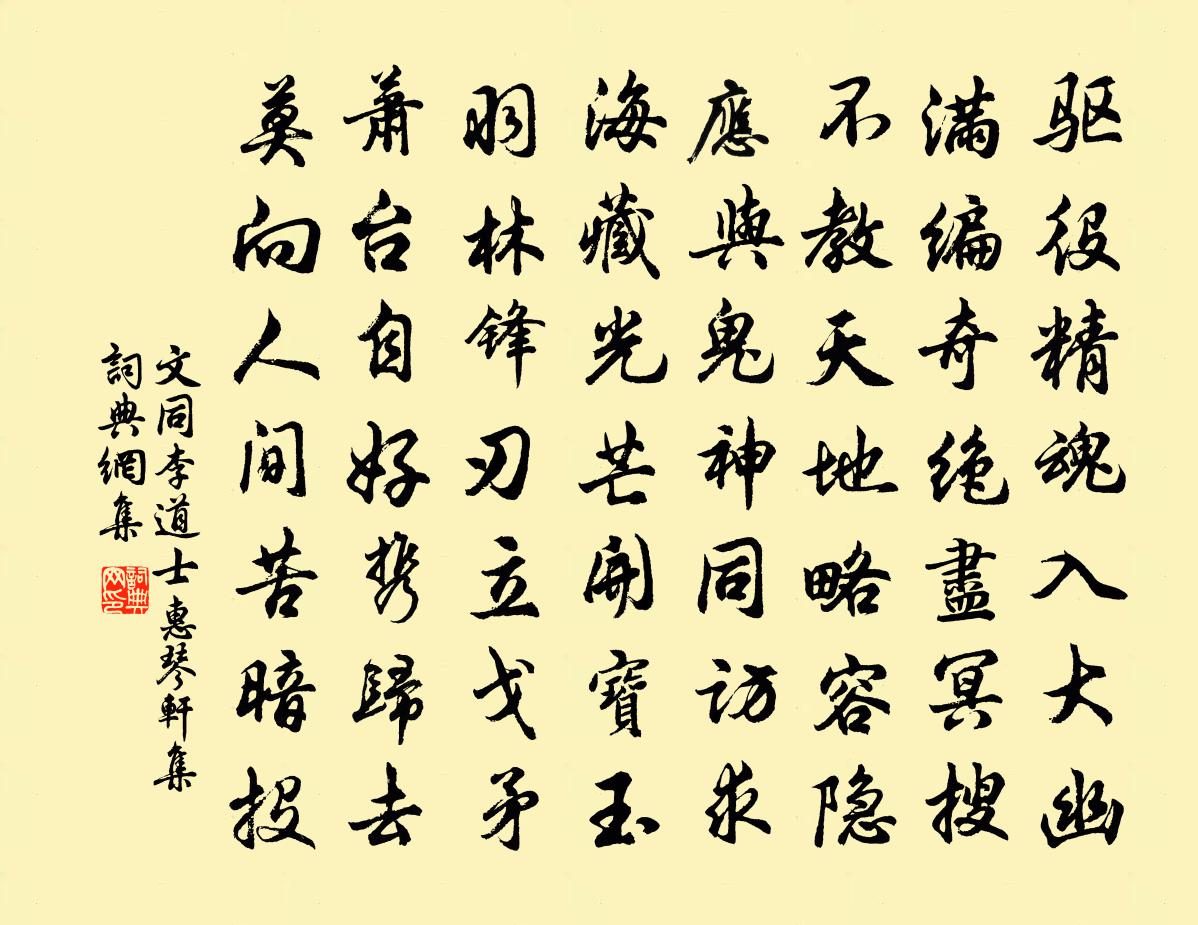 驱役精魂入大幽
满编奇绝盡冥搜
不教天地略容隐
應與鬼神同访求
海藏光芒開寶玉
羽林锋刃立戈矛
萧台自好携歸去
莫向人间苦暗投
文同李道士惠琴軒集
詞典網集
詞典網印